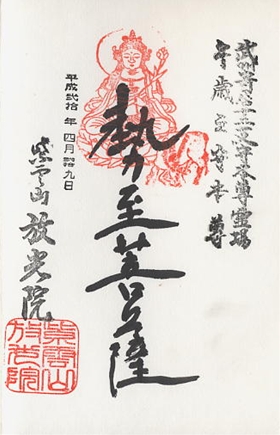 武蔵国十二支守本尊霊場
午歳之守本尊
勢至菩薩
平成弐拾年四月拾九日
紫雲山 放光院
紫雲山
放光院